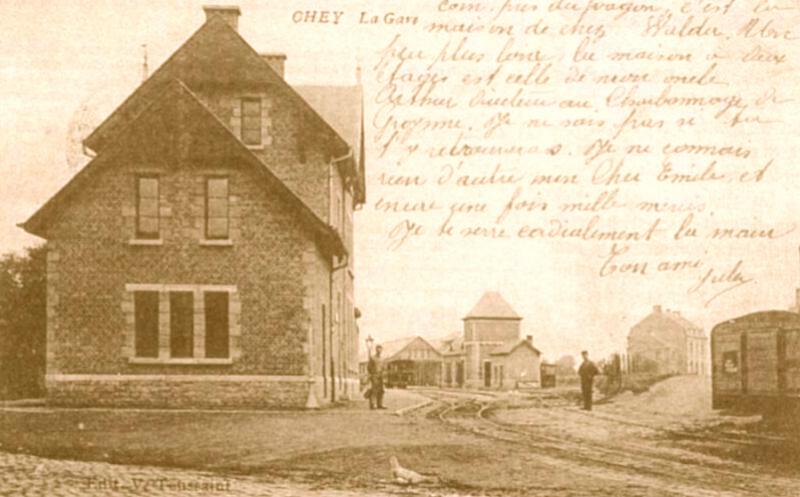 CHEY La Gare
coin, près du wagon, c'est la
maison de chez Walder. Une
peu plus loin, la maison à deux
étages est celle de mon oncle
Arthur Directeur au Charbonnage de
Je ne sais pas si tu
t'y retrouveras. Je ne connais
rien d'autre mon Cher Emile, et
encore une fois mille mercis.
Je te serre cordialement la main
Ton ami
Jules
Edit. V. Toussaint